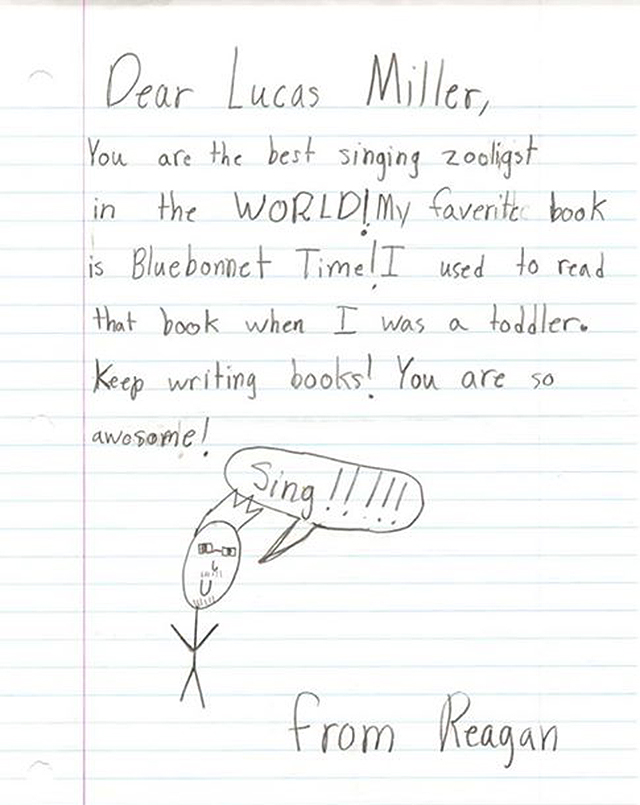 Dear Lucas Miller,
You are the best singing zooligst
in the WORLD! My faverite book
is Bluebonnet Time! I used to read
that book when I was a toddler.
Keep writing books! You are so
awosome!
Sing!!!!!
from Reagan